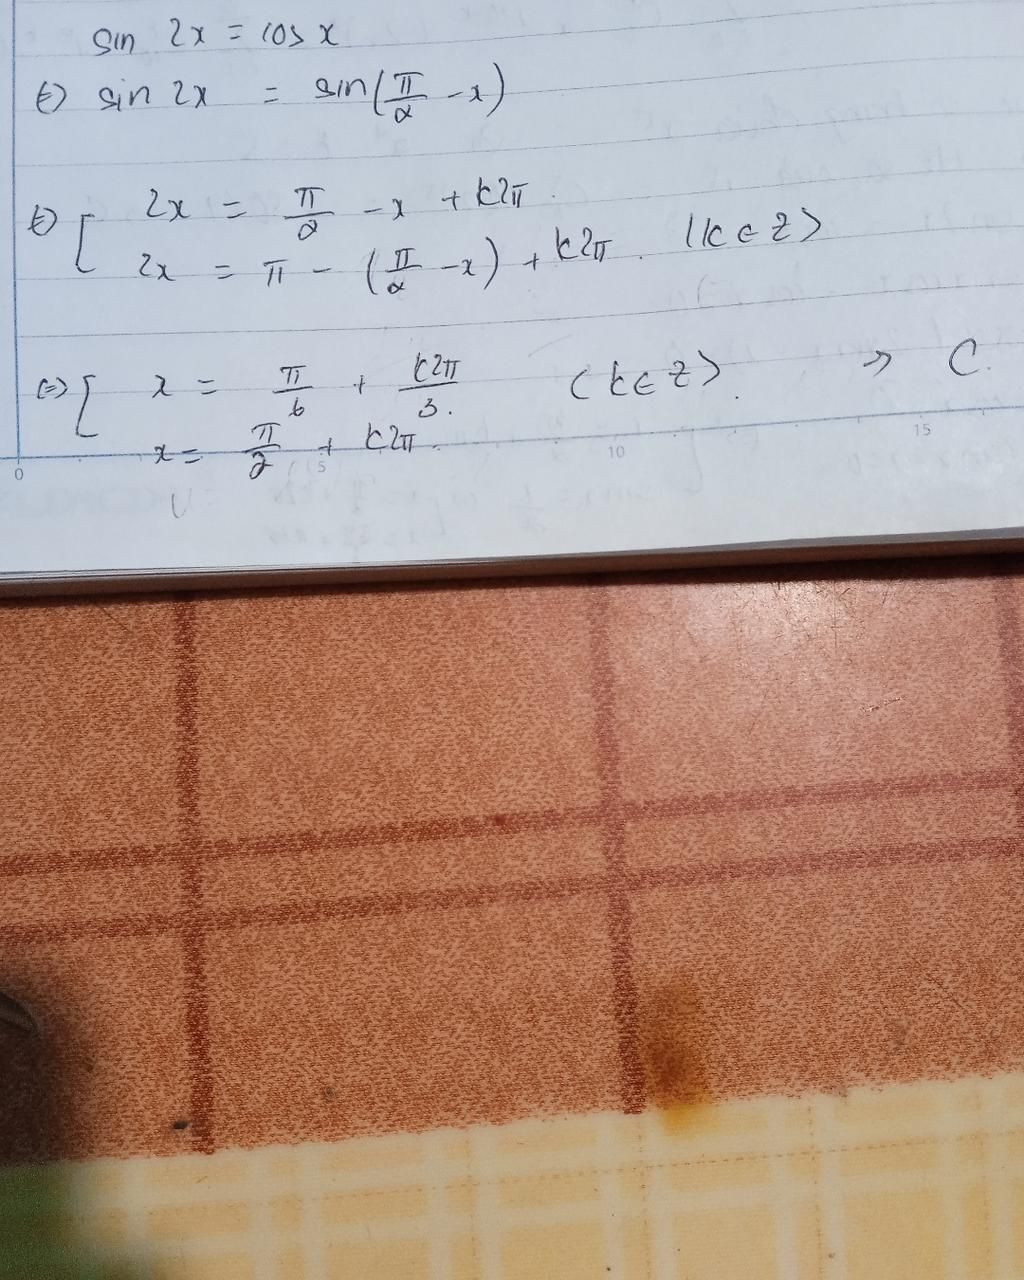 sin 2x = cos x
⇔ sin 2x = sin(π/2 - x)
⇔ [ 2x = π/2 - x + k2π.
2x = π - (π/2 - x) + k2π. (k ∈ Z)
⇔ [ x = π/6 + k2π/3. (k ∈ Z). → C.
x = π/2 + k2π.
0 5 10 15